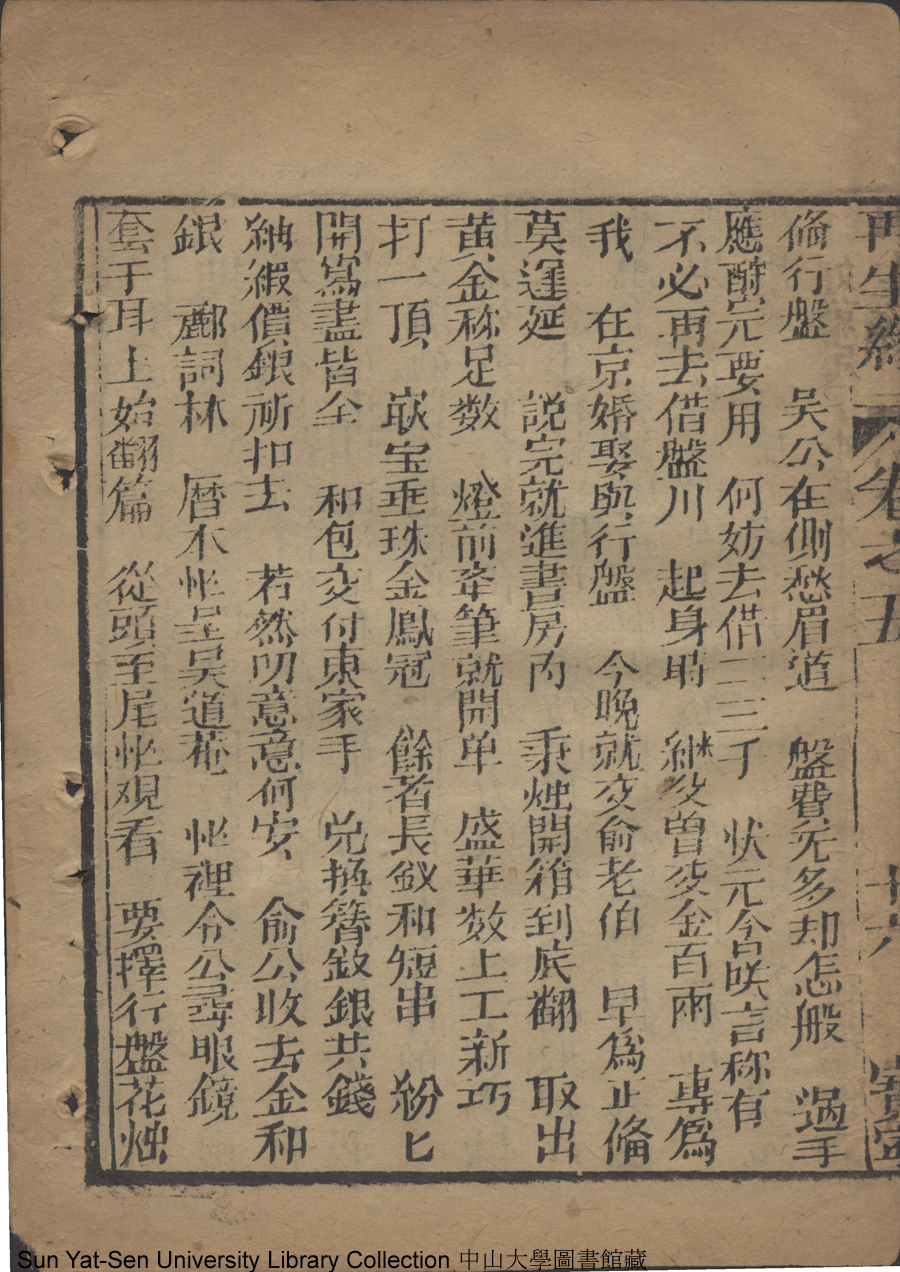 再生緣 卷之五 十六 寶寧
俻行盤 吴公在側愁眉道 盤費无多却怎般 過手
應酧完要用 何妨去借二三千 状元含咲言称有
不必再去借盤川 起身時 継父曽交金百兩 專為
我 在京婚娶與行盤 今晚就交俞老伯 早為正俻
莫遲延 説完就進書房内 秉烛開箱到底翻 取出
黄金称足数 燈前牵筆就開单 盛華数上工新巧
打一頂 嵌宝垂珠金鳳冠 餘者長釵和短串 紛匕
開寫盡皆全 和包交付東家手 兑換簪釵銀共錢
紬緞價銀祈扣去 若然叨意意何安 俞公收去金和
銀 酈詞林 曆本忙呈吴道菴 忙裡令公尋眼鏡
套于耳上始翻篇 從頭至尾忙观看 要擇行盤花烛
Sun Yat-Sen University Library Collection 中山大學圖書館藏